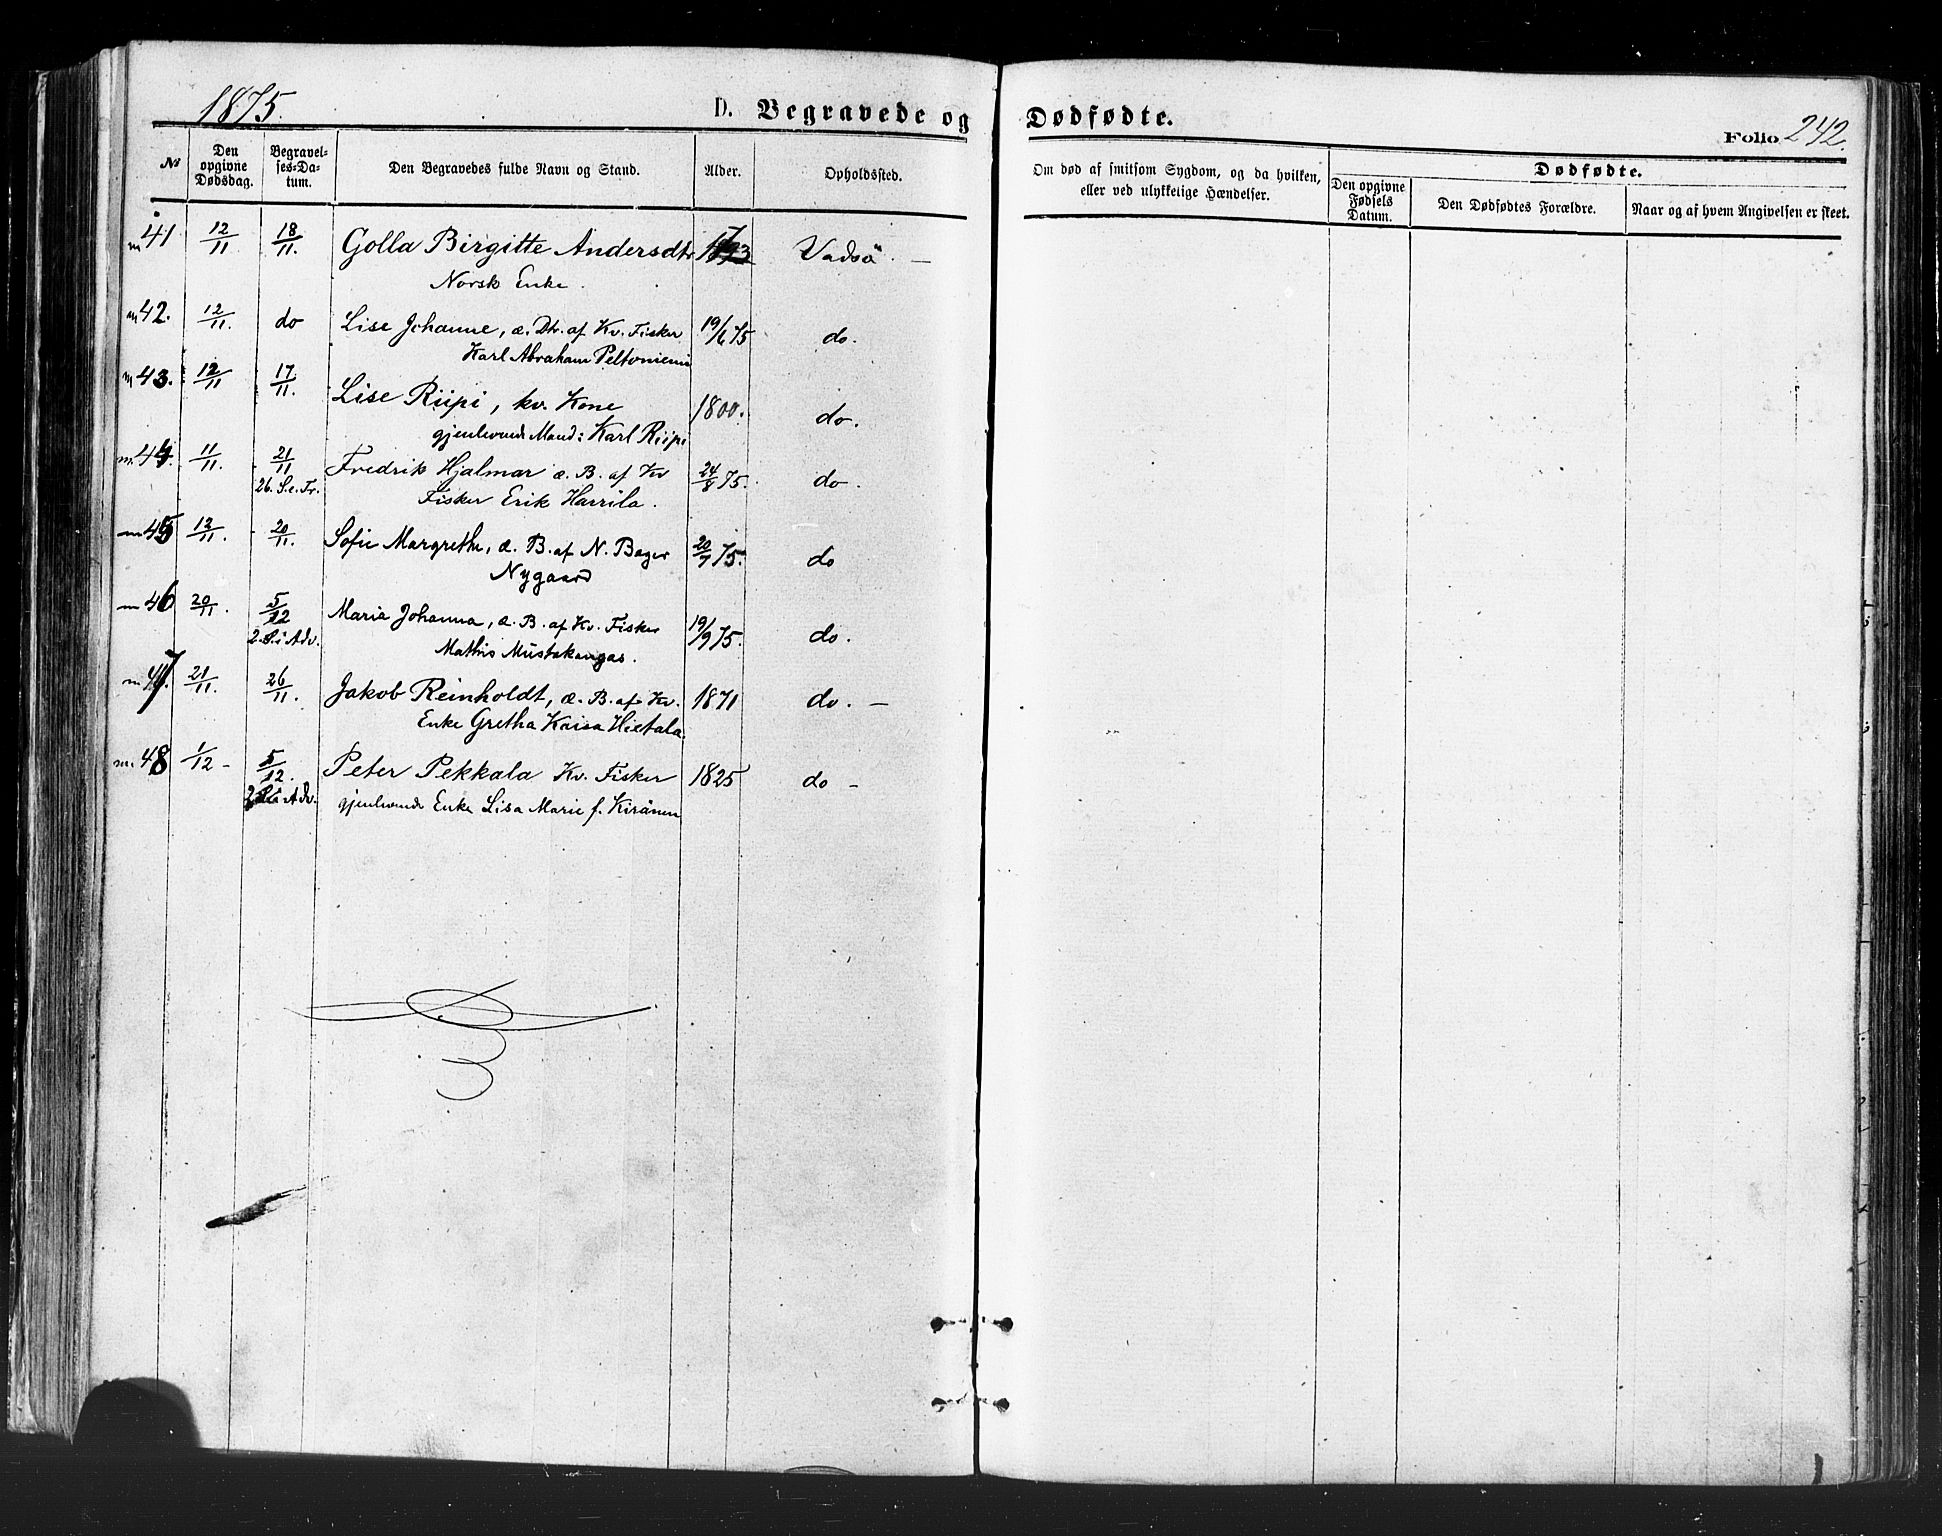 1875.
D. Begravede og Dødfødte.
Folio 242.
No
Den opgivne Dødsdag.
Begravelses-Datum.
Den Begravedes fulde Navn og Stand.
Alder.
Opholdssted.
Om død af smitsom Sygdom, og da hvilken, eller ved ulykkelige Hændelser.
Dødfødte.
Den opgivne Fødsels Datum.
Den Dødfødtes Forældre.
Naar og af hvem Angivelsen er skeet.
41 12/11 18/11. Golla Birgitte Andersdtr Vadsö. —
Norsk Enke.
42. 12/11. do Lise Johanne, æ. Dtr. af Kv. Fisker 19/6 75 do.
Karl Abraham Peltoniemi
43. 12/11 17/11. Lise Riipi, kv. Kone 1800. do.
gjenlevende Mand: Karl Riipi
44. 11/11. 21/11 Fredrik Hjalmar æ. B. af Kv 24/8 75. do.
26. S. e. Tr. Fisker Erik Harrila.
45 13/11. 20/11. Sofie Margrethe, æ. B. af N. Bager 20/7 75. do
Nygaard
46 20/11. 5/12 Maria Johanna, æ. B. af Kv. Fisker 19/9 75. do.
2. S. i Adv. Mathis Mustakangas.
47. 21/11. 26/11. Jakob Reinholdt, æ. B. af Kv. 1871 do. —
Enke Gretha Kaisa Hietala.
48 1/12 - 5/12. Peter Pekkala Kv. Fisker 1825 do —
2 S. i Adv. gjenlevende Enke Lisa Marie f. Kiränen